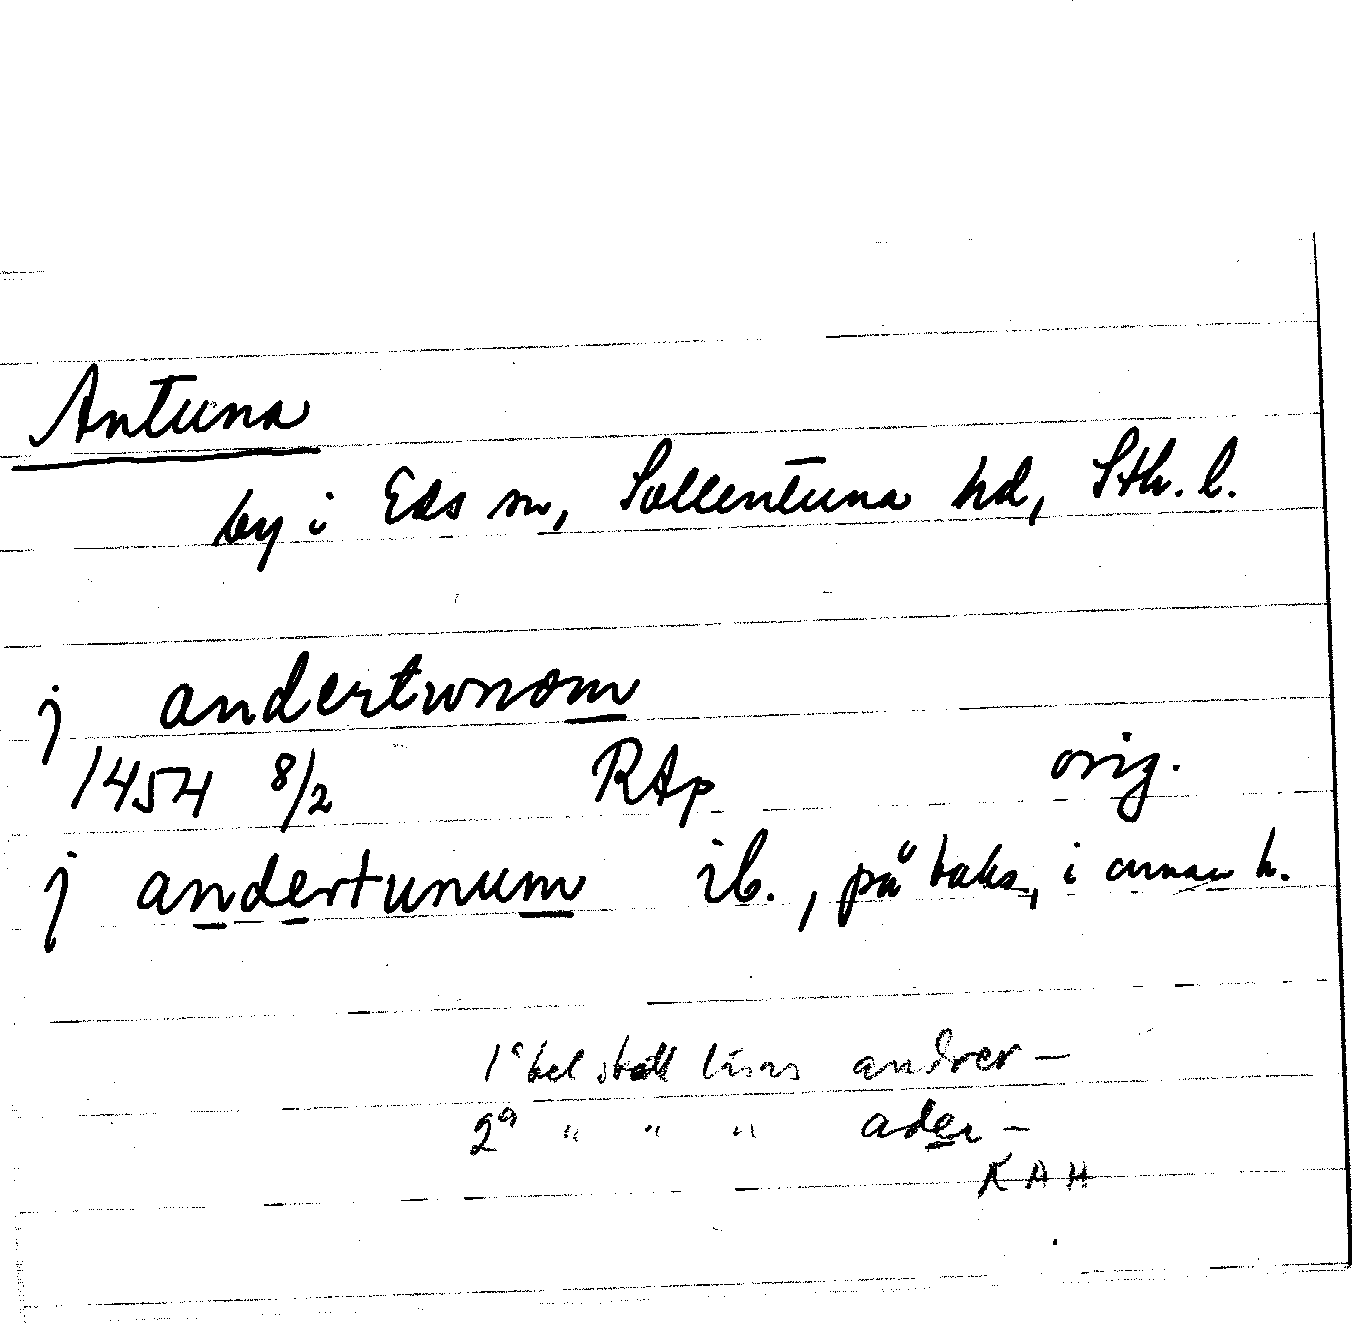 Antuna
by i Eds sn, Sollentuna hd, Sth. l.
j andertunom
1454 8/2 RAp orig.
j andertunum ib., på baks, i annan h.
1a bel skall läsas andrer –
2a " " " ader –
KAH